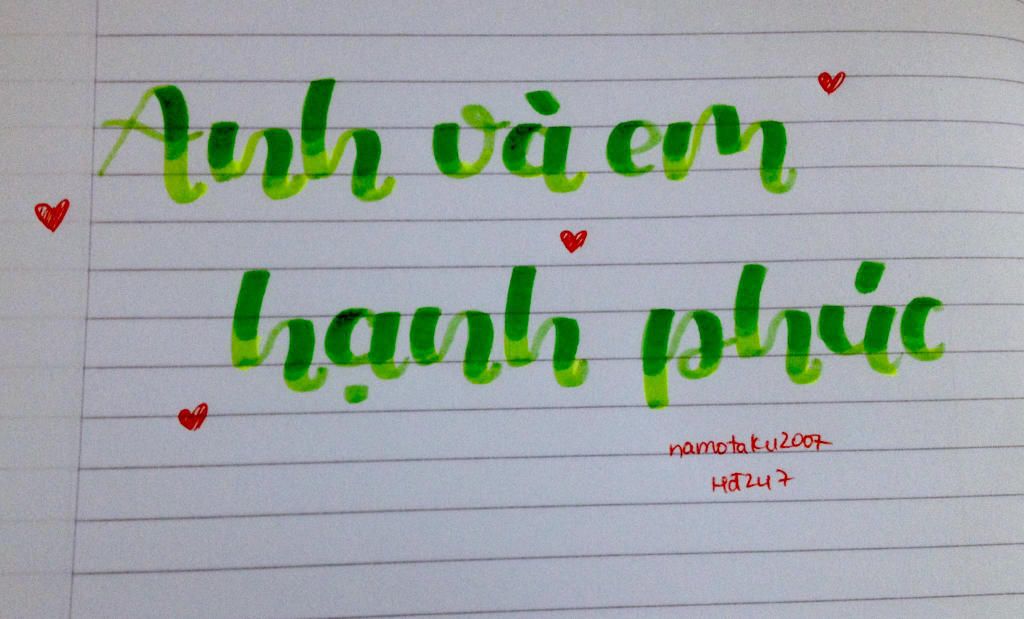 Anh và em
hạnh phúc
namotaku2007
Hđ247